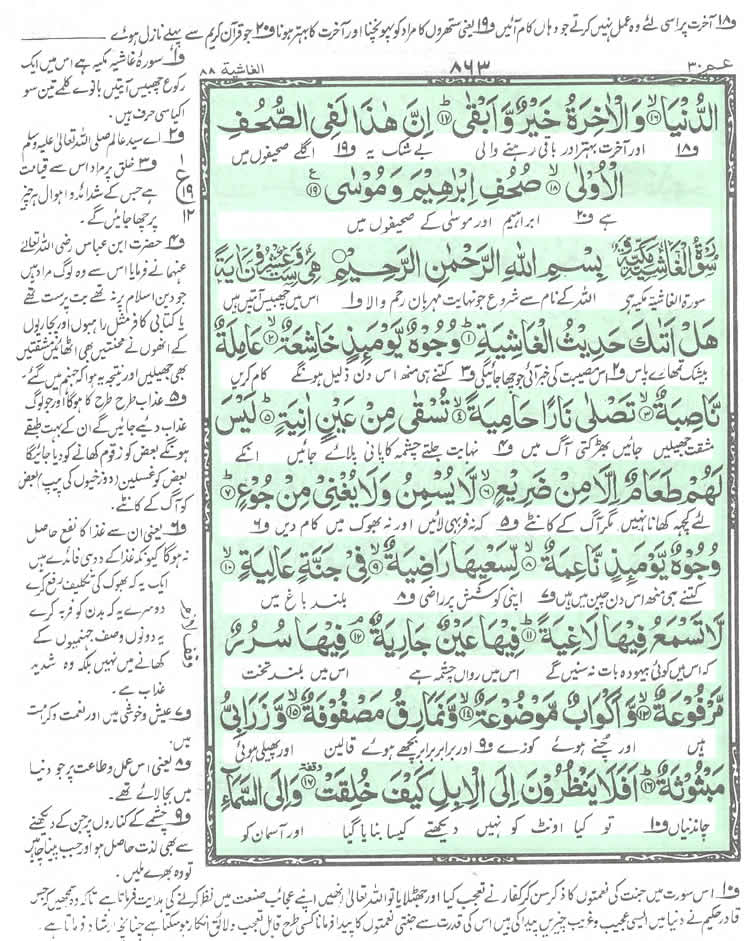 و۱۸ آخرت پر اسی لئے وہ عمل نہیں کرتے جو وہاں کام آئیں و۱۹ یعنی ستھروں کا مراد کو پہونچنا اور آخرت کا بہتر ہونا و۲۰ جو قرآن کریم سے پہلے نازل ہوئے
عمّ ۳۰
۸۶۳
الغاشیة ۸۸
الدُّنْيَا ﴿۱۶﴾ وَالْاٰخِرَةُ خَيْرٌ وَّاَبْقٰى ﴿۱۷﴾ اِنَّ هٰذَا لَفِى الصُّحُفِ
و۱۸ اور آخرت بہتر اور باقی رہنے والی بے شک یہ و۱۹ اگلے صحیفوں میں
الْاُوْلٰى ﴿۱۸﴾ صُحُفِ اِبْرٰهِيْمَ وَمُوْسٰى ﴿۱۹﴾
ہے و۲۰ ابراہیم اور موسٰی کے صحیفوں میں
سُوْرَةُ الْغَاشِيَةِ مَكِّيَّةٌ بِسْمِ اللهِ الرَّحْمٰنِ الرَّحِيْمِ وَّهِىَ سِتٌّ وَّعِشْرُوْنَ اٰيَةً
سورۃ الغاشیۃ مکیہ ہے اللہ کے نام سے شروع جو نہایت مہربان رحم والا و۱ اس میں چھبیس آیتیں ہیں
هَلْ اَتٰىكَ حَدِيْثُ الْغَاشِيَةِ ﴿۱﴾ وُجُوْهٌ يَّوْمَئِذٍ خَاشِعَةٌ ﴿۲﴾ عَامِلَةٌ
بیشک تمہارے پاس و۲ اس مصیبت کی خبر آئی جو چھا جائیگی و۳ کتنے ہی منھ اس دن ذلیل ہونگے کام کریں
نَّاصِبَةٌ ﴿۳﴾ تَصْلٰى نَارًا حَامِيَةً ﴿۴﴾ تُسْقٰى مِنْ عَيْنٍ اٰنِيَةٍ ﴿۵﴾ لَيْسَ
مشقت جھیلیں جائیں بھڑکتی آگ میں و۴ نہایت جلتے چشمہ کا پانی پلائے جائیں انکے
لَهُمْ طَعَامٌ اِلَّا مِنْ ضَرِيْعٍ ﴿۶﴾ لَّا يُسْمِنُ وَلَا يُغْنِىْ مِنْ جُوْعٍ ﴿۷﴾
لئے کچھ کھانا نہیں مگر آگ کے کانٹے و۵ کہ نہ فربہی لائیں اور نہ بھوک میں کام دیں و۶
وُجُوْهٌ يَّوْمَئِذٍ نَّاعِمَةٌ ﴿۸﴾ لِّسَعْيِهَا رَاضِيَةٌ ﴿۹﴾ فِىْ جَنَّةٍ عَالِيَةٍ ﴿۱۰﴾
کتنے ہی منھ اس دن چین میں ہیں و۷ اپنی کوشش پر راضی و۸ بلند باغ میں
لَّا تَسْمَعُ فِيْهَا لَاغِيَةً ﴿۱۱﴾ فِيْهَا عَيْنٌ جَارِيَةٌ ﴿۱۲﴾ فِيْهَا سُرُرٌ
کہ اس میں کوئی بیہودہ بات نہ سنیں گے اس میں رواں چشمہ ہے اس میں بلند تخت
مَّرْفُوْعَةٌ ﴿۱۳﴾ وَّاَكْوَابٌ مَّوْضُوْعَةٌ ﴿۱۴﴾ وَّنَمَارِقُ مَصْفُوْفَةٌ ﴿۱۵﴾ وَّزَرَابِىُّ
ہیں اور چُنے ہوئے کوزے و۹ اور برابر برابر بچھے ہوئے قالین اور پھیلی ہوئی
مَبْثُوْثَةٌ ﴿۱۶﴾ اَفَلَا يَنْظُرُوْنَ اِلَى الْاِبِلِ كَيْفَ خُلِقَتْ ﴿۱۷﴾ وَاِلَى السَّمَآءِ
چاندنیاں و۱۰ تو کیا اونٹ کو نہیں دیکھتے کیسا بنایا گیا اور آسمان کو
و۱ سورۂ غاشیہ مکیہ ہے اس میں ایک
رکوع چھبیس آیتیں بانوے کلمے تین سو
اکیاسی حرف ہیں۔
و۲ اے سید عالم صلی اللہ تعالٰی علیہ وسلم
و۳ خلق پر مراد اس سے قیامت
ہے جس کے شدائد و اہوال ہر چیز
پر چھا جائیں گے۔
و۴ حضرت ابن عباس رضی اللہ تعالٰی
عنہما نے فرمایا اس سے وہ لوگ مراد ہیں
جو دین اسلام پر نہ تھے بت پرست تھے
یا کتابی کافر مثل راہبوں اور پجاریوں
کے انھوں نے محنتیں بھی اٹھائیں مشقتیں
بھی جھیلیں اور نتیجہ یہ ہوا کہ جہنم میں گئے
و۵ عذاب طرح طرح کا ہوگا اور جو لوگ
عذاب دیے جائیں گے ان کے بہت طبقے
ہونگے بعض کو زقوم کھانے کو دیا جائیگا
بعض کو غسلین (دوزخیوں کی پیپ) بعض
کو آگ کے کانٹے۔
و۶ یعنی ان سے غذا کا نفع حاصل
نہ ہوگا کیونکہ غذا کے دو ہی فائدے ہیں
ایک یہ کہ بھوک کی تکلیف رفع کرے
دوسرے یہ کہ بدن کو فربہ کرے
یہ دونوں وصف جہنمیوں کے
کھانے میں نہیں بلکہ وہ شدید
عذاب ہے۔
و۷ عیش و خوشی میں اور نعمت و کرامت
میں۔
و۸ یعنی اس عمل و طاعت پر جو دنیا
میں بجا لائے تھے۔
و۹ چشمے کے کناروں پر جن کے دیکھنے
سے بھی لذت حاصل ہو اور جب پینا چاہیں
تو وہ بھرے ملیں۔
ع
۱۹
۱۲
و۱۰ اس سورت میں جنت کی نعمتوں کا ذکر سن کر کفار نے تعجب کیا اور جھٹلایا تو اللہ تعالٰی انھیں اپنے عجائب صنعت میں نظر کرنے کی ہدایت فرماتا ہے تاکہ وہ سمجھیں کہ جس
قادر حکیم نے دنیا میں ایسی عجیب و غریب چیزیں پیدا کی ہیں اس کی قدرت سے جنتی نعمتوں کا پیدا فرمانا کسی طرح قابل تعجب و لائق انکار ہو سکتا ہے چنانچہ ارشاد فرماتا ہے۔